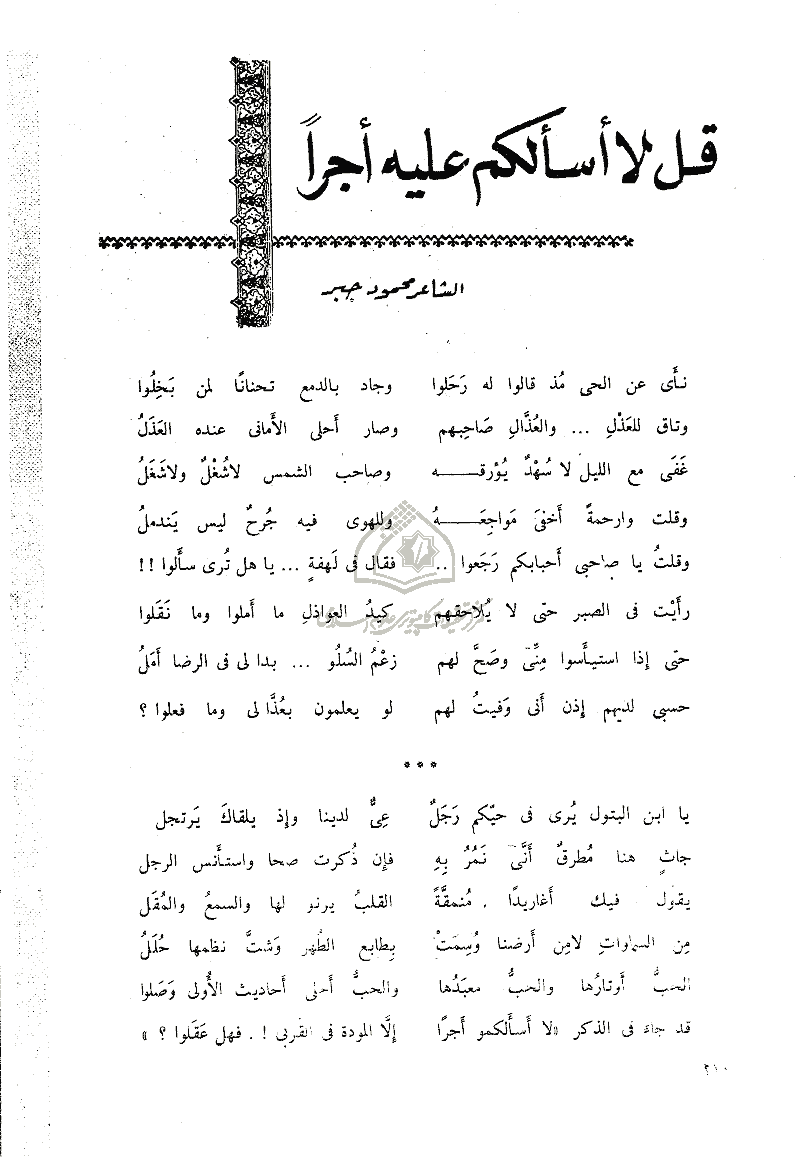 قل لا أسألكم عليه أجراً
الشاعر محمود جبر
نـأَى عن الحى مُذ قالوا له رَحَلوا وجاد بـالدمع تـحنانًا لمن بَخِلُوا
وتاق للعَذْلِ ... والعُذَّالِ صَاحِبهم وصار أَحلى الأَمانى عنده العَذَلُ
غَفَى مع الليل لا سُهْدٌ يُوْرقــه وصاحب الشمس لاشُغْلٌ ولاشَغَلُ
وقلت وارحمةً أَخفىَ مَواجِعَــهُ وللهوى فيه جُرحٌ ليس يَندملُ
وقلتُ يا صاحبى أَحبابكم رَجَعوا .. فقال فى لَهفةٍ ... يا هل تُرى سأَلوا !!
رأَيْت فى الصبر حتى لا يُلاحقهم كيدُ العواذلِ ما أَملوا وما نَقَلوا
حتى إِذا استيأَسوا مِنِّى وصَحَّ لهم زعْمُ السُلُو ... بدا لى فى الرضا أَمَلُ
حسبى لديهم إِذن أَنى وَفيتُ لهم لو يعلمون بعُذَّالى وما فعلوا ؟
***
يا ابن البتول يُرى فى حيّكم رَجَلٌ عِىٌّ لدينا وإِذ يلقاكَ يَرتجل
جاثٍ هنا مُطرقٌ أَنَّى نَمُرُ بِهِ فإِن ذُكرت صحا واستأْنس الرجل
يقول فيك أَغاريدًا مُنمقَّةً القلبُ يرنو لها والسمعُ والمُقَل
مِن السماواتِ لامِن أَرضنا وُسِمَتْ بِطابع الطُهر وَشتَّ نظمها حُلَلُ
الحبُّ أَوتارُها والحبُّ معبَدُها والحبُّ أَحلى أَحاديث الأُولى وَصَلوا
قد جاءَ فى الذكر «لا أَسأَلكمو أَجرًا إِلَّا المودة فى القربى ! . فهل عَقَلوا ؟ »
٢١٠